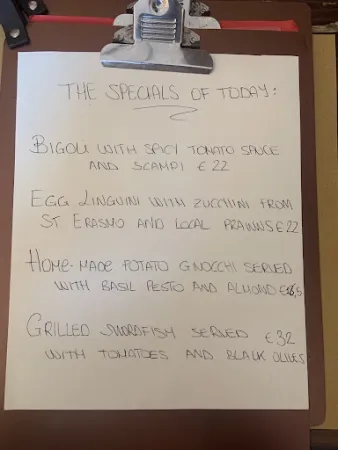 THE SPECIALS OF TODAY:
BIGOLI WITH SPICY TOMATO SAUCE
AND SCAMPI €22
EGG LINGUINI WITH ZUCCHINI FROM
ST ERASMO AND LOCAL PRAWNS €22
HOME-MADE POTATO GNOCCHI SERVED
WITH BASIL PESTO AND ALMOND
GRILLED SWORDFISH SERVED €32
WITH TOMATOES AND BLACK OLIVES